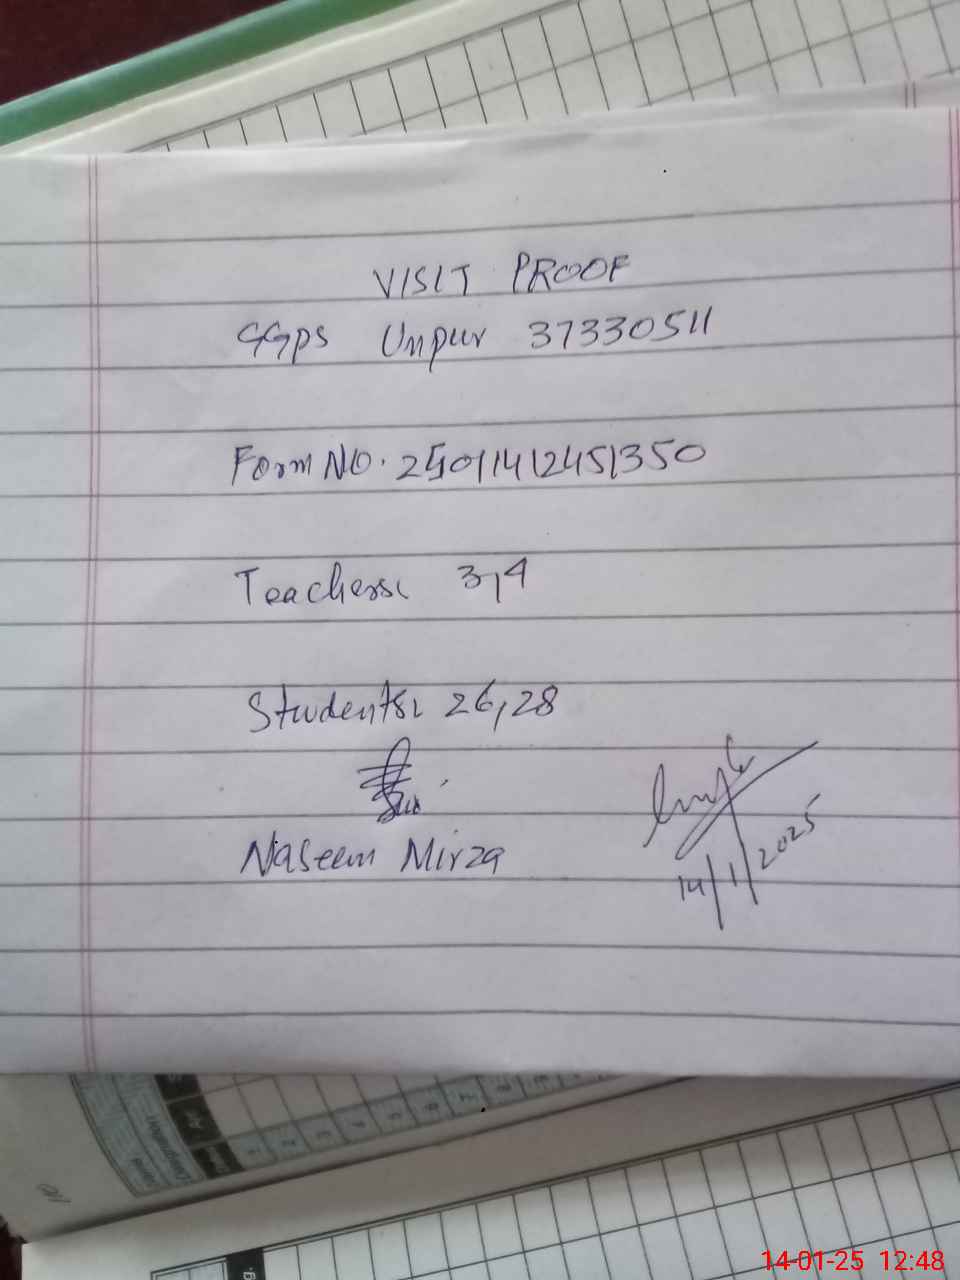 VISIT PROOF
GGPS Unpur 37330511
Form NO. 25011412451350
Teachers: 3,4
Students: 26,28
Naseem Mirza
14/1/2025
1
2
3
4
5
6
7
8
14-01-25 12:48